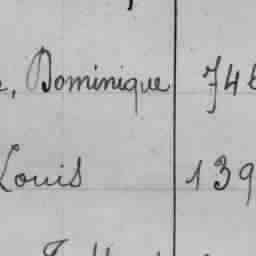 Dominique 748
Louis 139